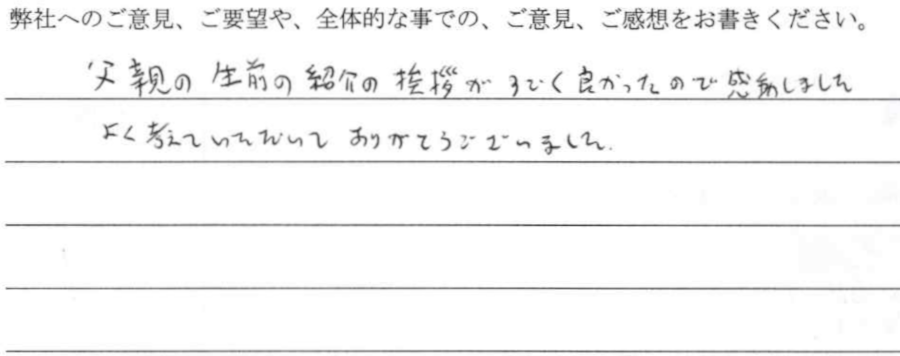 弊社へのご意見、ご要望や、全体的な事での、ご意見、ご感想をお書きください。
父親の生前の紹介の挨拶がすごく良かったので感動しました
よく考えていただいてありがとうございました.